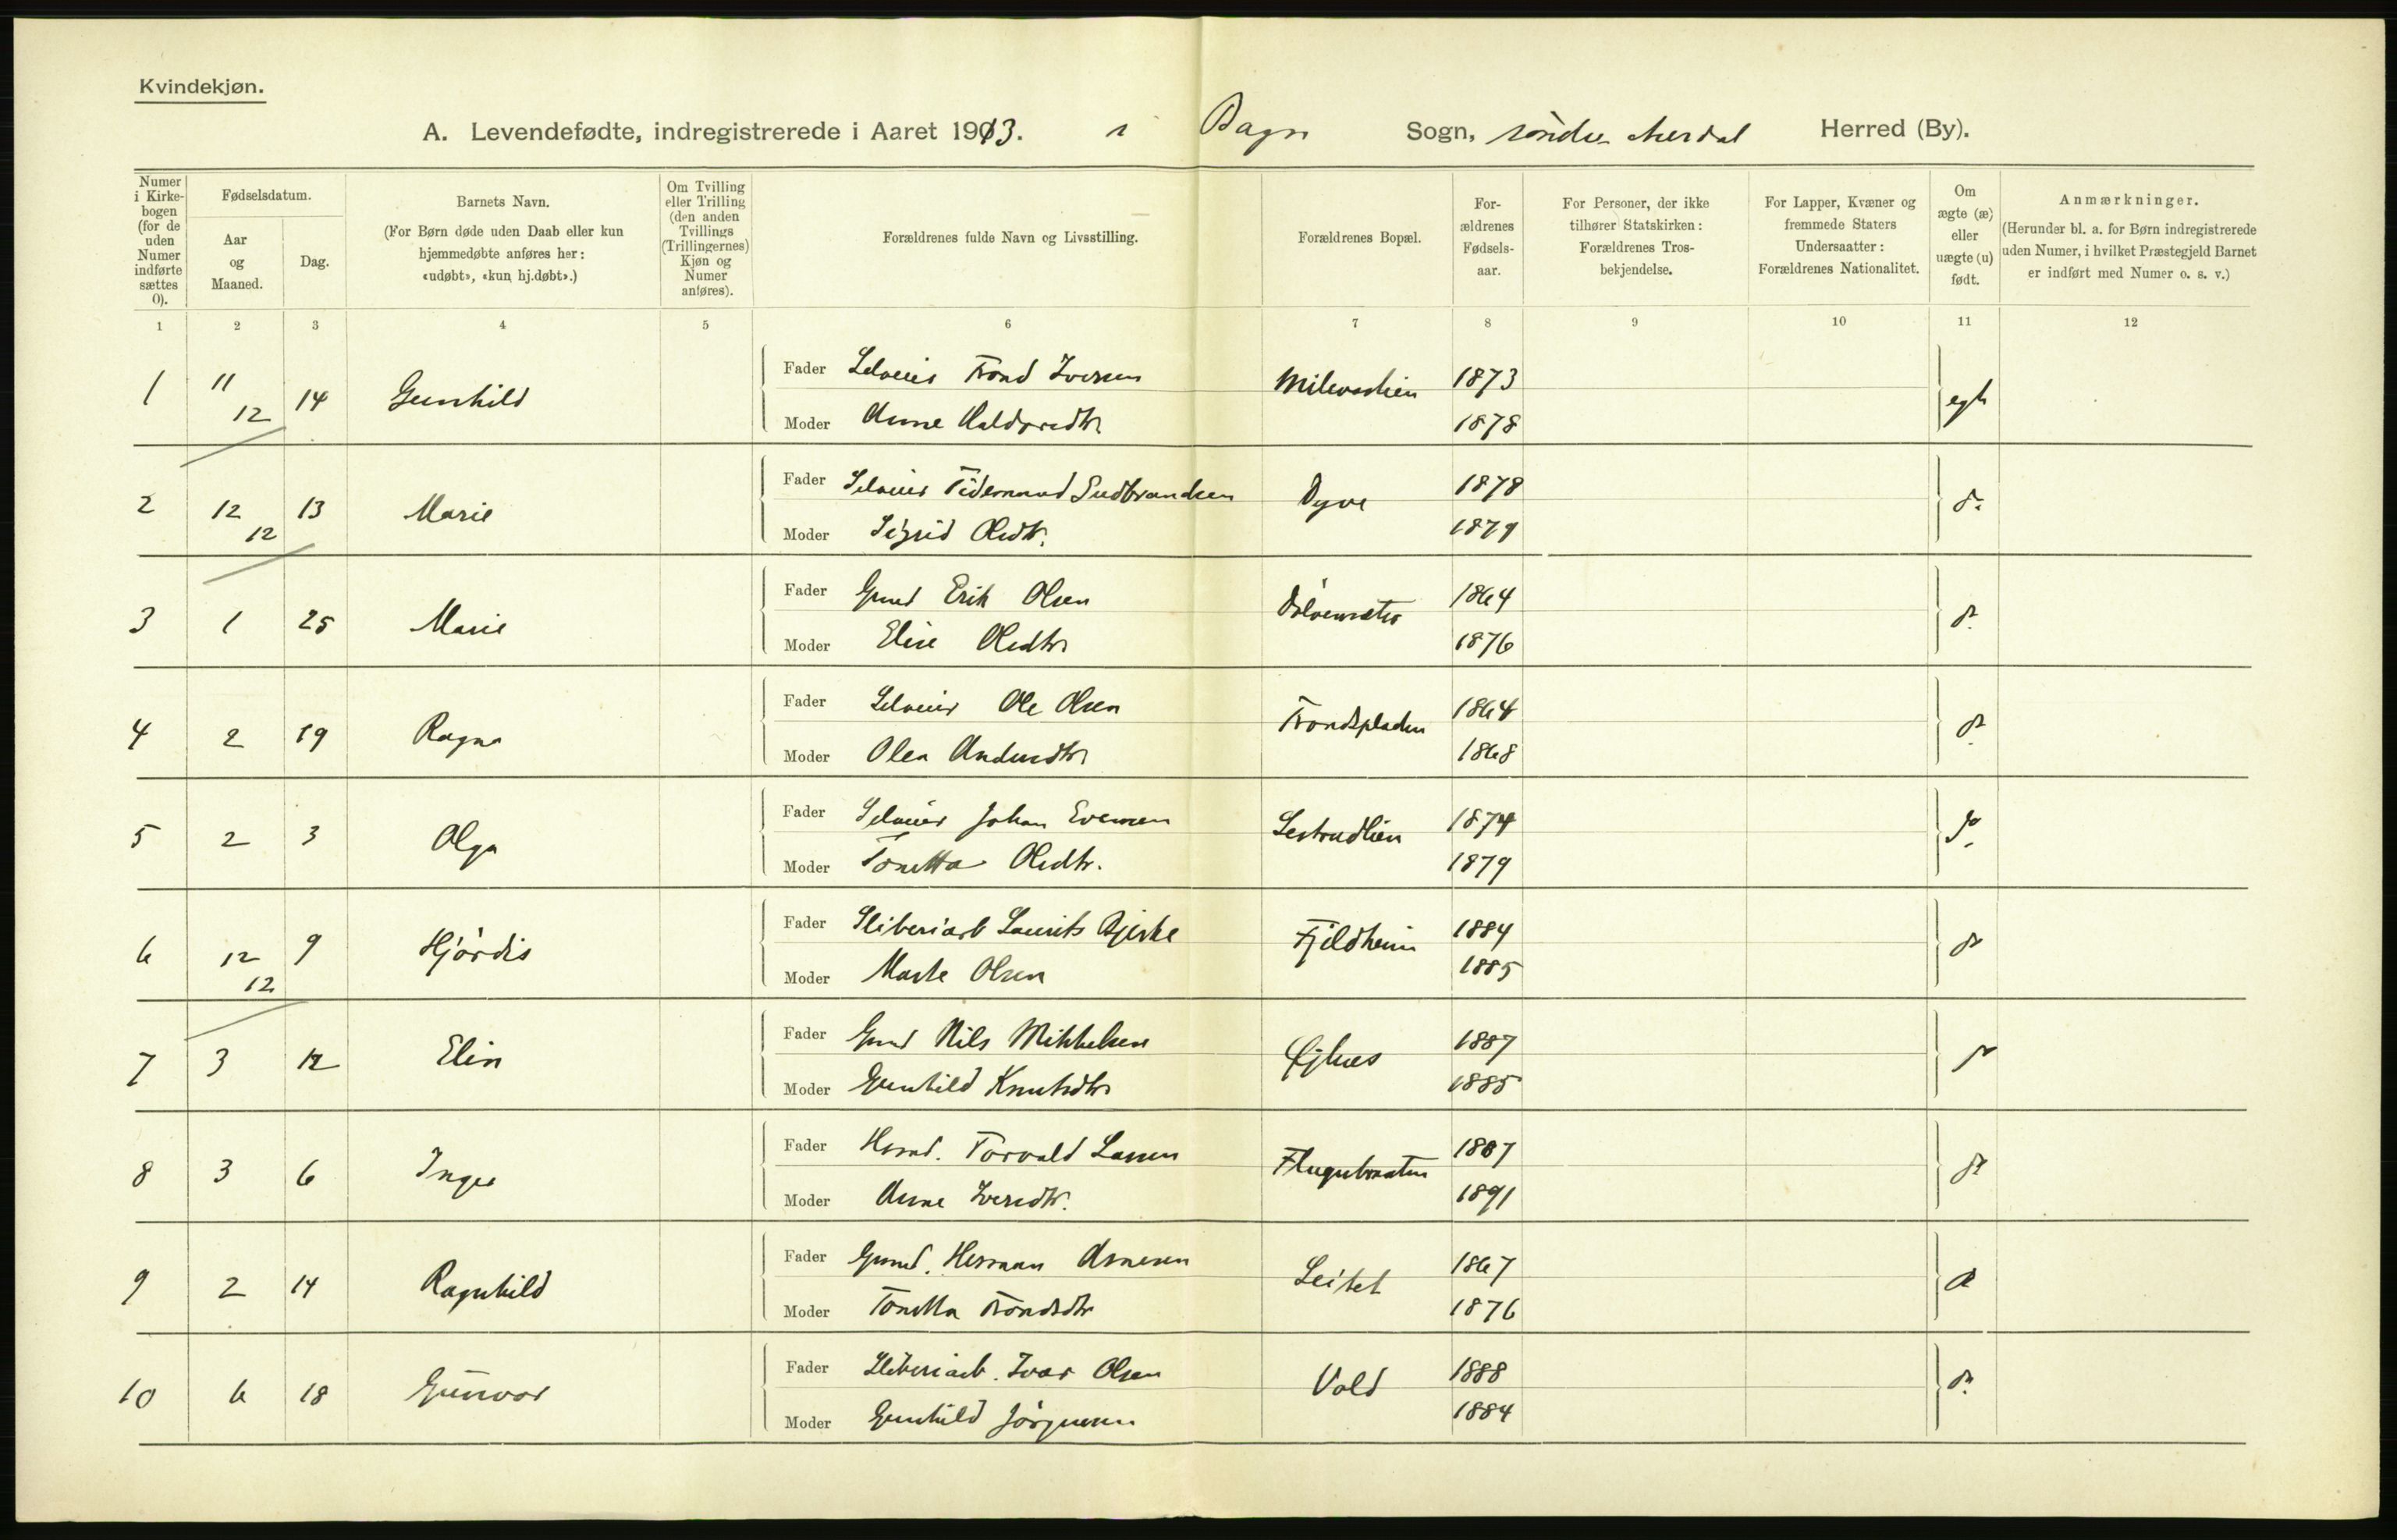 Kvindekjøn.
A. Levendefødte, indregistrerede i Aaret 1913. i Bagn Sogn, søndre Aurdal Herred (By).
Numer i Kirke-bogen (for de uden Numer indførte sættes 0).
Fødselsdatum.
Aar og Maaned.
Dag.
Barnets Navn.
(For Børn døde uden Daab eller kun hjemmedøbte anføres her: «udøbt», «kun hj.døbt».)
Om Tvilling eller Trilling (den anden Tvillings (Trillingernes) Kjøn og Numer anføres).
Forældrenes fulde Navn og Livsstilling.
Forældrenes Bopæl.
For-ældrenes Fødsels-aar.
For Personer, der ikke tilhører Statskirken: Forældrenes Tros-bekjendelse.
For Lapper, Kvæner og fremmede Staters Undersaatter: Forældrenes Nationalitet.
Om ægte (æ) eller uægte (u) født.
Anmærkninger.
(Herunder bl. a. for Børn indregistrerede uden Numer, i hvilket Præstegjeld Barnet er indført med Numer o. s. v.)
1 2 3 4 5 6 7 8 9 10 11 12
1 11 12 14 Gunhild Fader Selveier Trond Iversen 1873 egte
Moder Anne 1878
2 12 12 13 Marie Fader Selveier Tidemand Gudbrandsen Dyve 1878 do
Moder Sigrid Olsdtr. 1879
3 1 25 Marie Fader Grmd Erik Olsen 1864 do
Moder Elise Olsdtr 1876
4 2 19 Ragna Fader Selveier Ole Olsen Trondspladsen 1864 do
Moder Olea Andersdtr 1868
5 2 3 Olga Fader Selveier Johan Evensen 1874 do
Moder Tonetta Olsdtr. 1879
6 12 12 9 Hjørdis Fader Sliberiarb Laurits Bjerke Fjeldheim 1884 do
Moder Marte Olsen 1885
7 3 12 Elin Fader Grmd Nils Mikkelsen 1887 do
Moder Gunhild Knutsdtr 1885
8 3 6 Inger Fader Husmd. Torvald Larsen 1887 do
Moder Anne Iversdtr. 1891
9 2 14 Ragnhild Fader Grmd. Herman Arnesen 1867 do
Moder Tonetta Trondsdtr 1876
10 6 18 Gunvor Fader Sliberiarb. Ivar Olsen Vold 1888 do
Moder Gunhild Jørgensen 1884